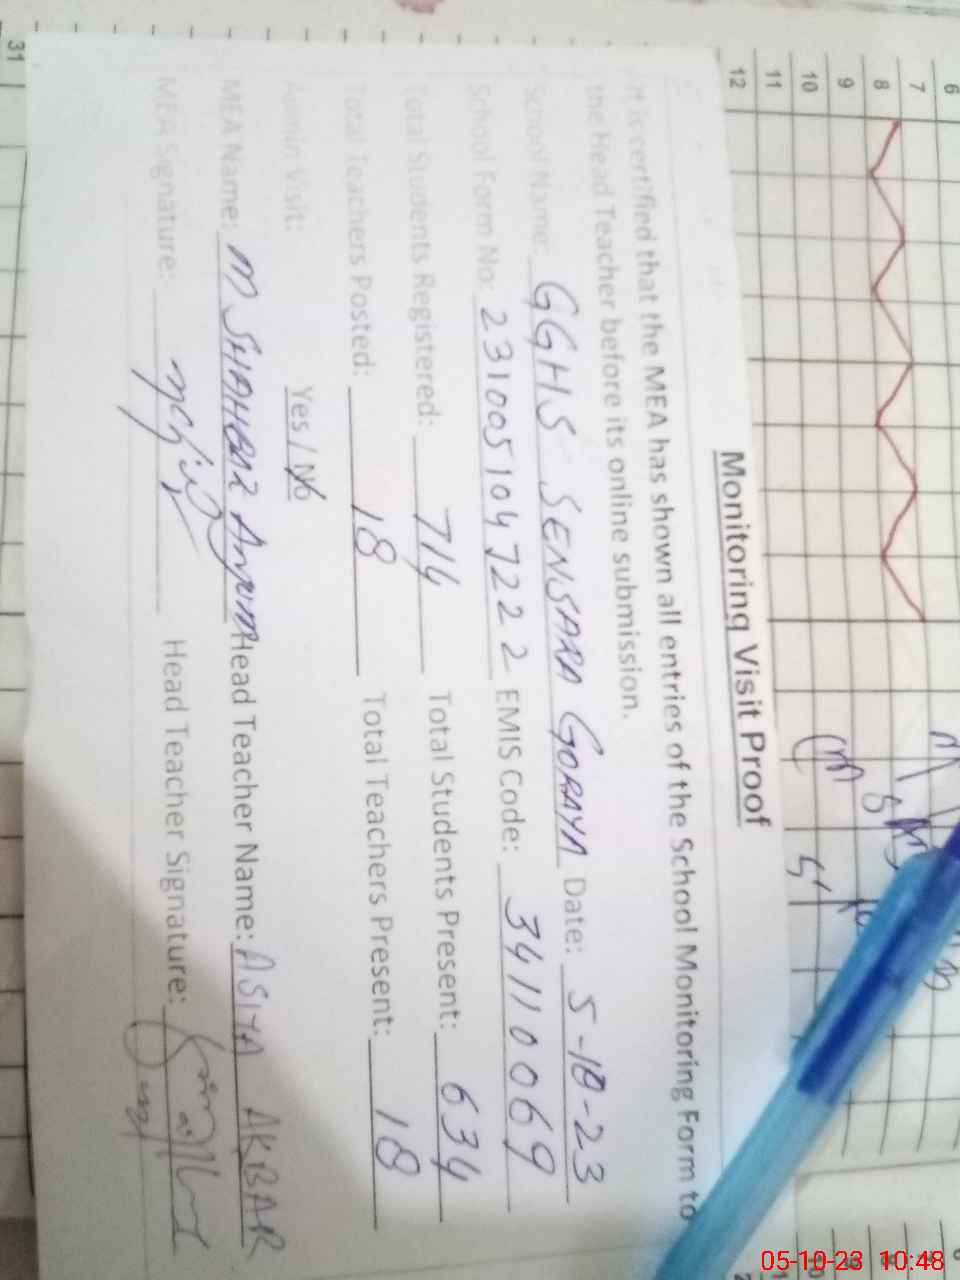 Monitoring Visit Proof
It is certified that the MEA has shown all entries of the School Monitoring Form to
the Head Teacher before its online submission.
School Name: GGHS SENSARA GORAYA Date: 5-10-23
School Form No: 2310051047222 EMIS Code: 34110069
Total Students Registered: 714 Total Students Present: 634
Total Teachers Posted: 18 Total Teachers Present: 18
Admin Visit: Yes / No
MEA Name: M SHAHBAZ Anjum Head Teacher Name: ASIYA AKBAR
MEA Signature: Head Teacher Signature:
6
7
8
9
10
11
12
31
05-10-23 10:48